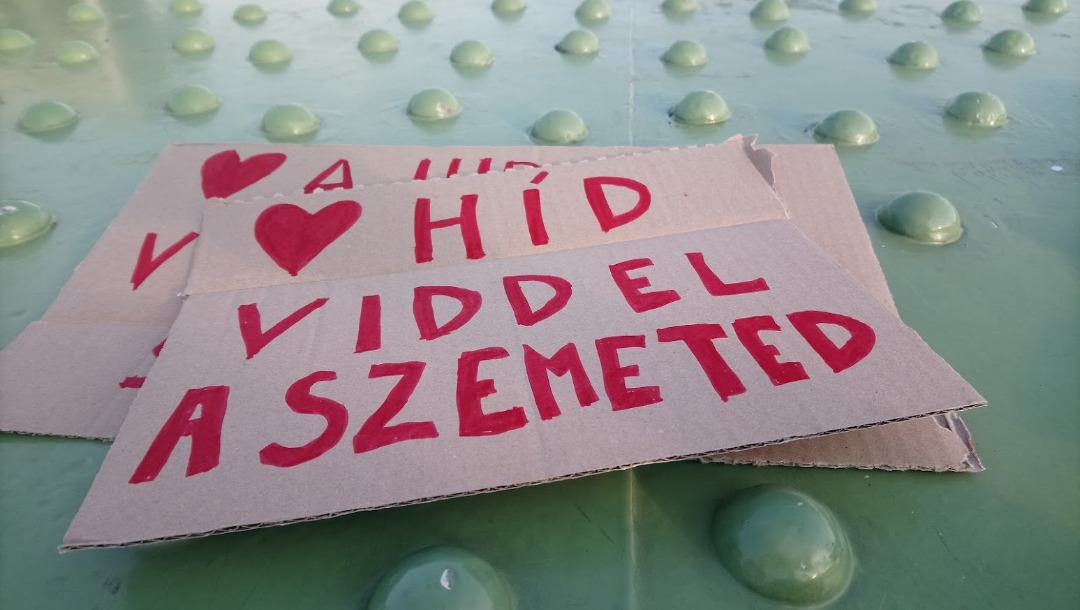 ♥ A HÍD
V
♥ HÍD
VIDD EL
A SZEMETED